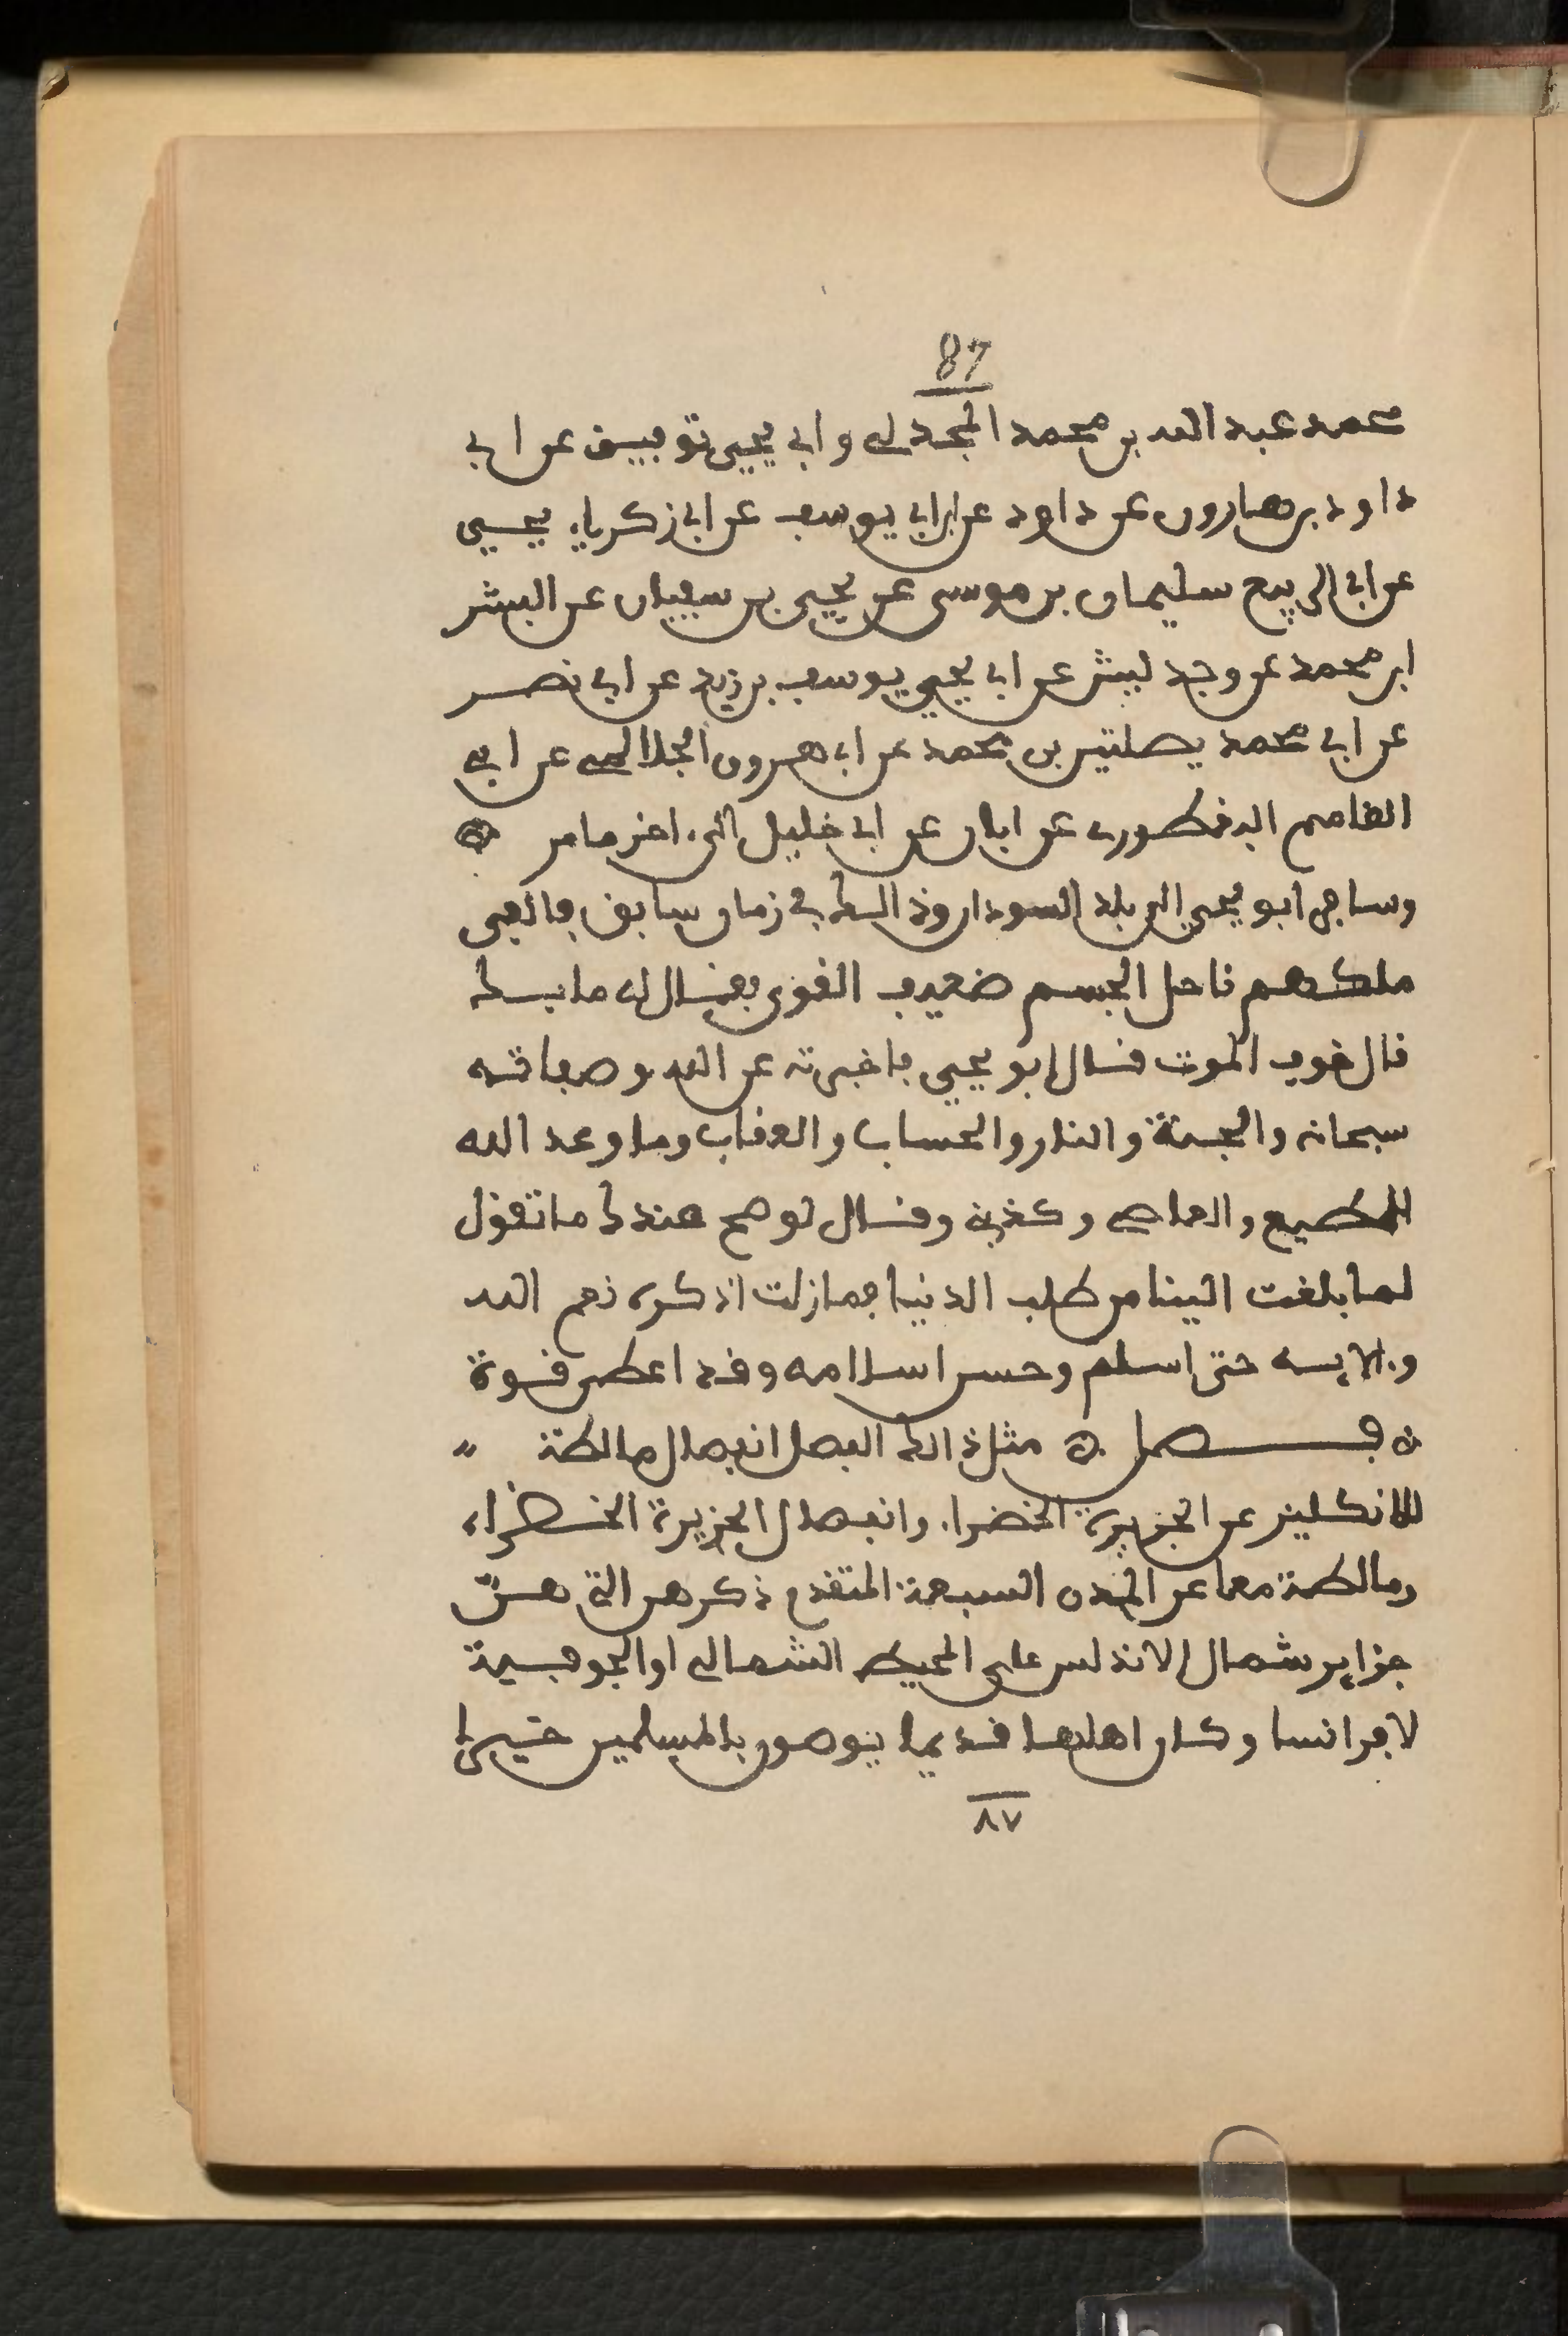 87
محمد عبد الله بن محمد المجدلي وابي يحيى توفيق عن ابي
داود بن هارون عن داود عن ابي يوسف عن ابي زكرياء يحيى
عن ابي الربيع سليمان بن موسى عن يحيى بن سفيان عن البشر
ابن محمد عن وجد ليبشر عن ابي يحيى يوسف بن زيد عن ابي نصر
عن ابي محمد يصلتين بن محمد عن ابي هرون الجلالمي عن ابي
القاسم البغطوري عن ابان عن ابي خليل الى اخر ما مر
وسافر ابو يحيى الى بلد السودان وذلك في زمان سابق فالفى
ملكهم ناحل الجسم ضعيف القوى فقال له ما بك
قال خوف الموت قال ابو يحيى فاخبرته عن الله وصفاته
سبحانه والجنة والنار والحساب والعقاب وما وعد الله
للمطيع والعاصي وكذبني وقال لو صح عندك ما تقول
لما بلغت الينا من طلب الدنيا فما زلت اذكره نعم الله
وءالايه حتى اسلم وحسن اسلامه وقد اعطي قوة
ن فصل ن مثل ذلك الفصل انفصال مالطة
للانكليز عن الجزيرة الخضراء وانفصال الجزيرة الخضراء
ومالطة معا عن المدن السبعة المتقدم ذكرهن التي هنّ
جزاير شمال الاندلس على المحيط الشمالي او الجوفية
لافرانسا وكان اهلها قديما يوصون بالمسلمين خيرا
٨٧